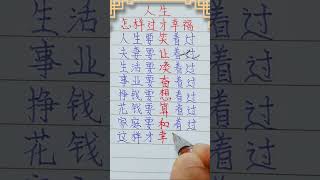 人生
怎样过才幸福
人生要笑着过
夫妻要让着过
生活要凑着过
事业要奋着过
挣钱要想着过
花钱要算着过
家庭要和着过
这样才幸
生活
事业
挣钱
花钱
着过
着过
着过
着过